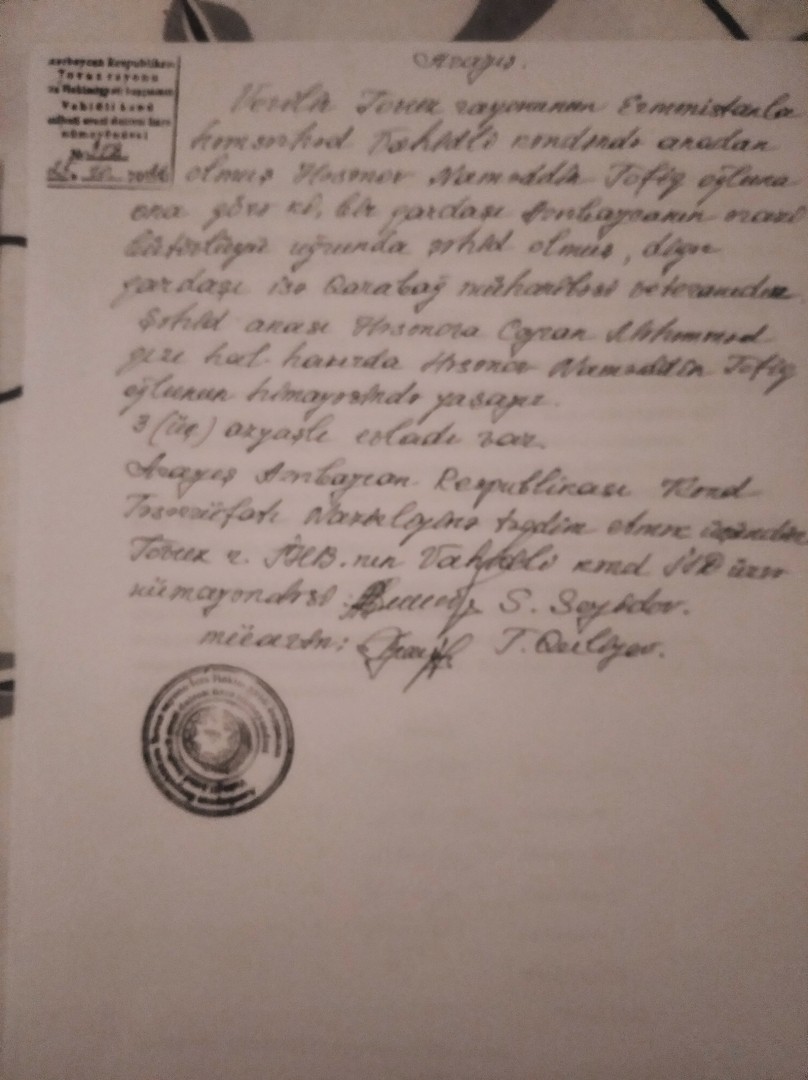 Azərbaycan Respublikası
Tovuz rayonu
Vahidli kənd
üzrə
nümayəndəsi
Arayış.
Verilir Tovuz rayonunun Ermənistanla
həmsərhəd Vahidli kəndində anadan
olmuş Həsənov Nəməddin Tofiq oğluna
ona görə ki, bir qardaşı Azərbaycanın ərazi
bütövlüyü uğrunda şəhid olmuş, digər
qardaşı isə Qarabağ müharibəsi veteranıdır.
Şəhid anası Həsənova Məhəmməd
qızı hal-hazırda Həsənov Nəməddin Tofiq
oğlunun himayəsində yaşayır.
3 (üç) azyaşlı evladı var.
Arayış Azərbaycan Respublikası Kənd
Təsərrüfatı Nazirliyinə təqdim etmək üçündür.
Tovuz r. İHB.nın Vahidli kənd üzrə
nümayəndəsi: S. Seyidov.
müavin: T. Quliyev.